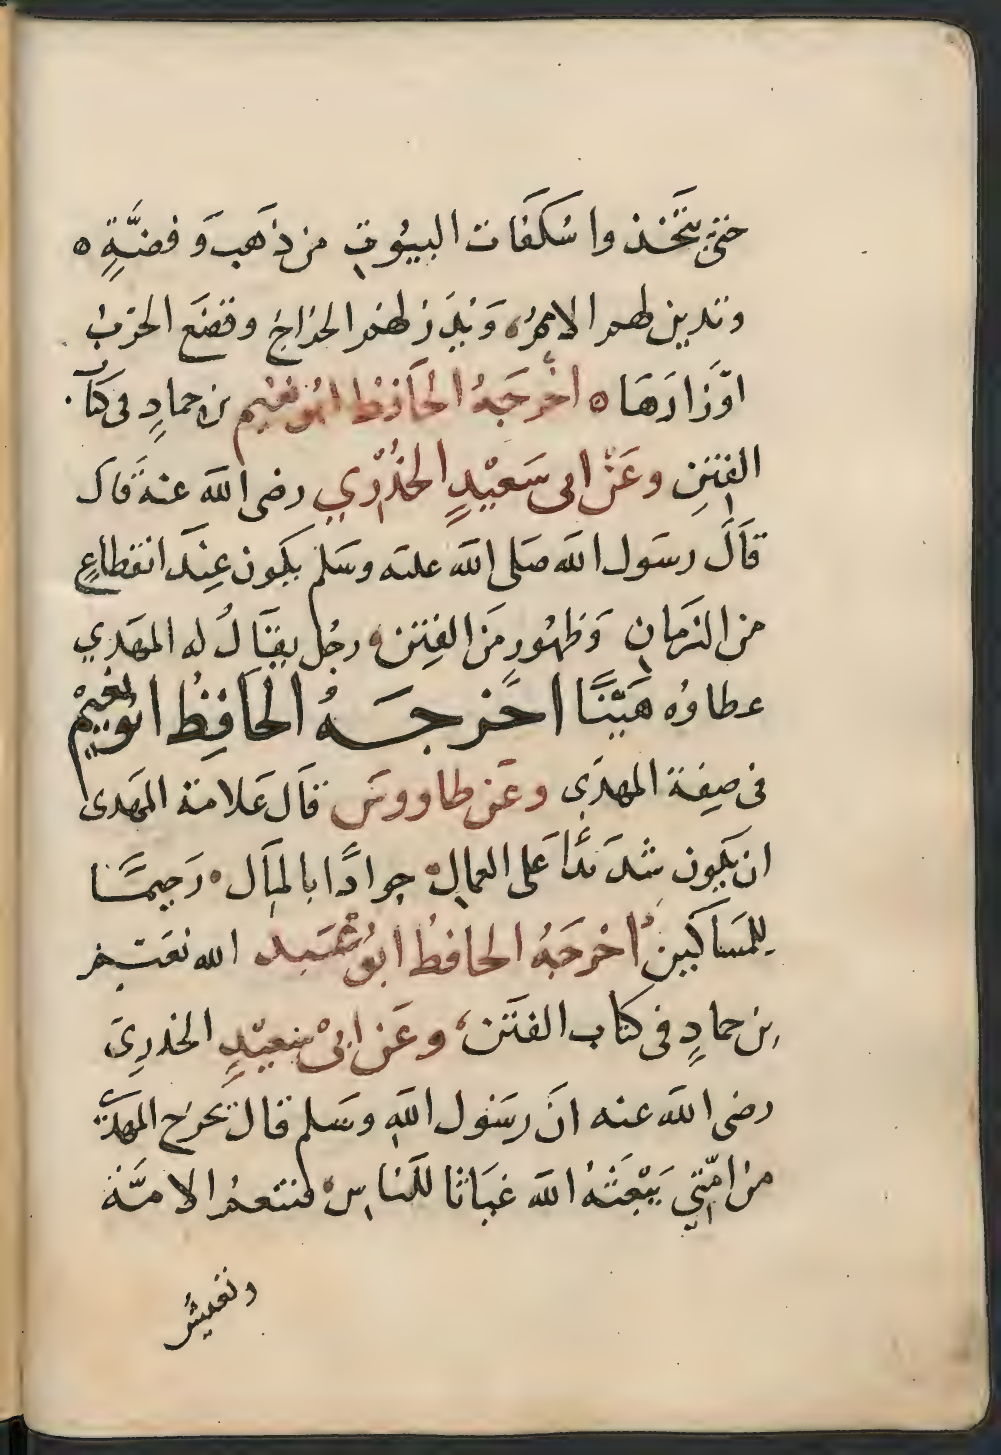 حتى يتخذوا سكفات البيوت من ذهب وفضة ه
وتدين لهم الامم، ويدر لهم الخراج وتضع الحرب
اوزارها ه اخرجه الحافظ ابو نعيم بن حماد في كتاب
الفتن وعن ابي سعيد الخدري رضي الله عنه قال
قال رسول الله صلى الله عليه وسلم يكون عند انقطاع
من الزمان وظهور من الفتن، رجل يقال له المهدي
عطاوه هينا اخرجه الحافظ ابو نعيم
في صفة المهدي وعن طاووس قال علامة المهدى
ان يكون شديدا على العمال، جوادا بالمال، رحيما
للمساكين اخرجه الحافظ ابو عبد الله نعيم
بن حماد في كتاب الفتن، وعن ابي سعيد الخدري
رضى الله عنه ان رسول الله وسلم قال يخرج المهدي
من امتي يبعثه الله غياثا للناس، فتنعم الامة
وتعيش